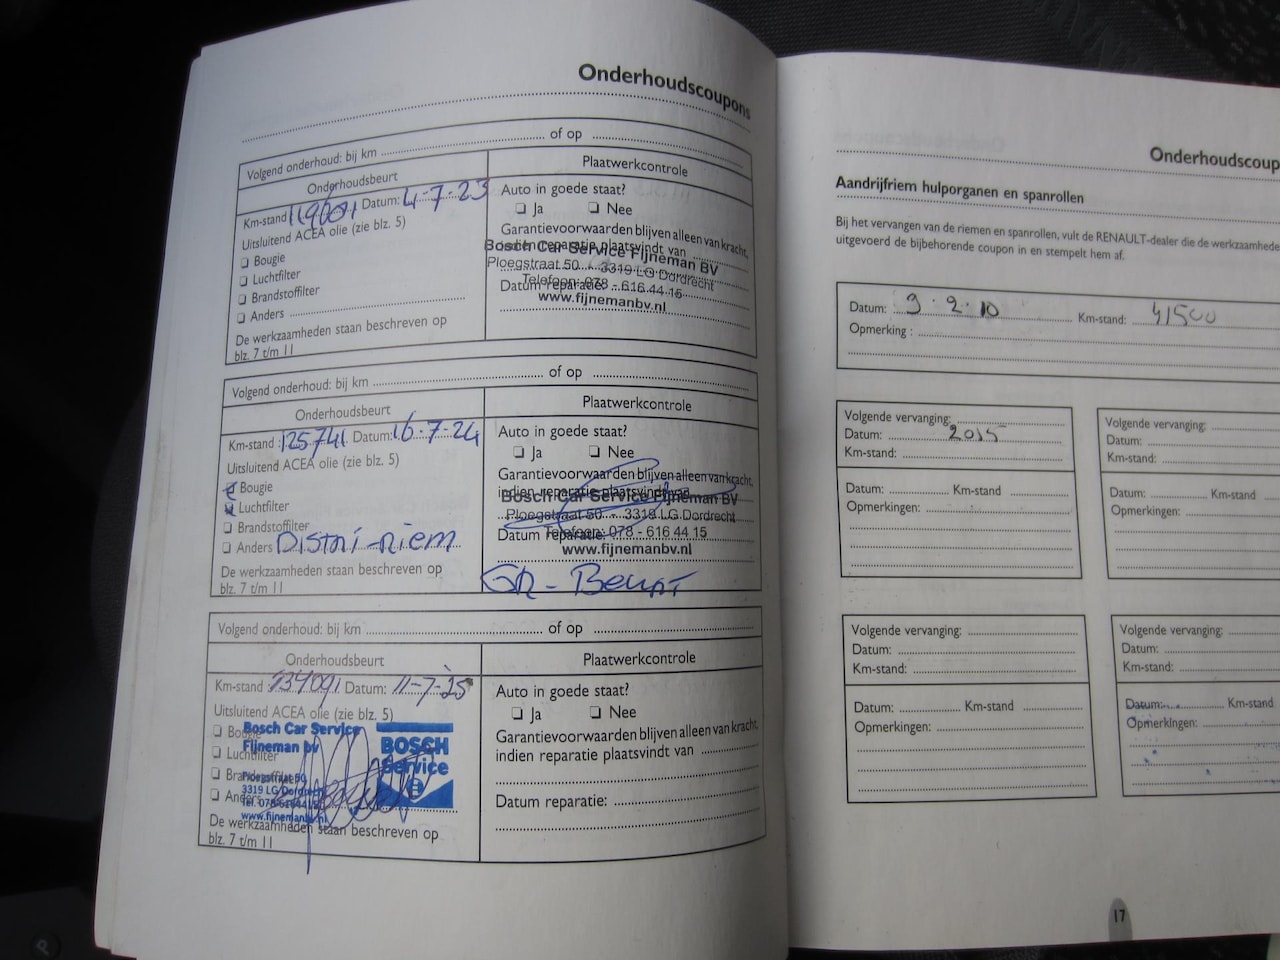 Onderhoudscoupons
Volgend onderhoud: bij km of op
Onderhoudsbeurt
Plaatwerkcontrole
Km-stand 119091 Datum: 4-7-23
Uitsluitend ACEA olie (zie blz. 5)
Bougie
Luchtfilter
Brandstoffilter
Anders
De werkzaamheden staan beschreven op
blz. 7 t/m 11
Auto in goede staat?
Ja Nee
Garantievoorwaarden blijven alleen van kracht,
indien reparatie plaatsvindt van
Datum reparatie:
Bosch Car Service Fijneman BV
Ploegstraat 50 - 3319 LG Dordrecht
Telefoon: 078 - 616 44 15
www.fijnemanbv.nl
Volgend onderhoud: bij km of op
Onderhoudsbeurt
Plaatwerkcontrole
Km-stand : 125741 Datum: 16-7-24
Uitsluitend ACEA olie (zie blz. 5)
Bougie
Luchtfilter
Brandstoffilter
Anders Distri-riem
De werkzaamheden staan beschreven op
blz. 7 t/m 11
Auto in goede staat?
Ja Nee
Garantievoorwaarden blijven alleen van kracht,
indien reparatie plaatsvindt van
Datum reparatie:
Bosch Car Service Fijneman BV
Ploegstraat 50 - 3319 LG Dordrecht
Telefoon: 078 - 616 44 15
www.fijnemanbv.nl
GR-Beurt
Volgend onderhoud: bij km of op
Onderhoudsbeurt
Plaatwerkcontrole
Km-stand : 134091 Datum: 11-7-25
Uitsluitend ACEA olie (zie blz. 5)
Bougie
Luchtfilter
Brandstoffilter
Anders
De werkzaamheden staan beschreven op
blz. 7 t/m 11
Bosch Car Service
Fijneman bv
Ploegstraat 50
3319 LG Dordrecht
Tel. 078-6164415
www.fijnemanbv.nl
BOSCH
Service
Auto in goede staat?
Ja Nee
Garantievoorwaarden blijven alleen van kracht,
indien reparatie plaatsvindt van
Datum reparatie:
Onderhoudscoup
Aandrijfriem hulporganen en spanrollen
Bij het vervangen van de riemen en spanrollen, vult de RENAULT-dealer die de werkzaamhede
uitgevoerd de bijbehorende coupon in en stempelt hem af.
Datum: 9-2-10 Km-stand: 41500
Opmerking :
Volgende vervanging:
Datum: 2015
Km-stand:
Datum: Km-stand
Opmerkingen:
Volgende vervanging:
Datum:
Km-stand:
Datum: Km-stand
Opmerkingen:
Volgende vervanging:
Datum:
Km-stand:
Datum: Km-stand
Opmerkingen:
Volgende vervanging:
Datum:
Km-stand:
Datum: Km-stand
Opmerkingen:
17
P